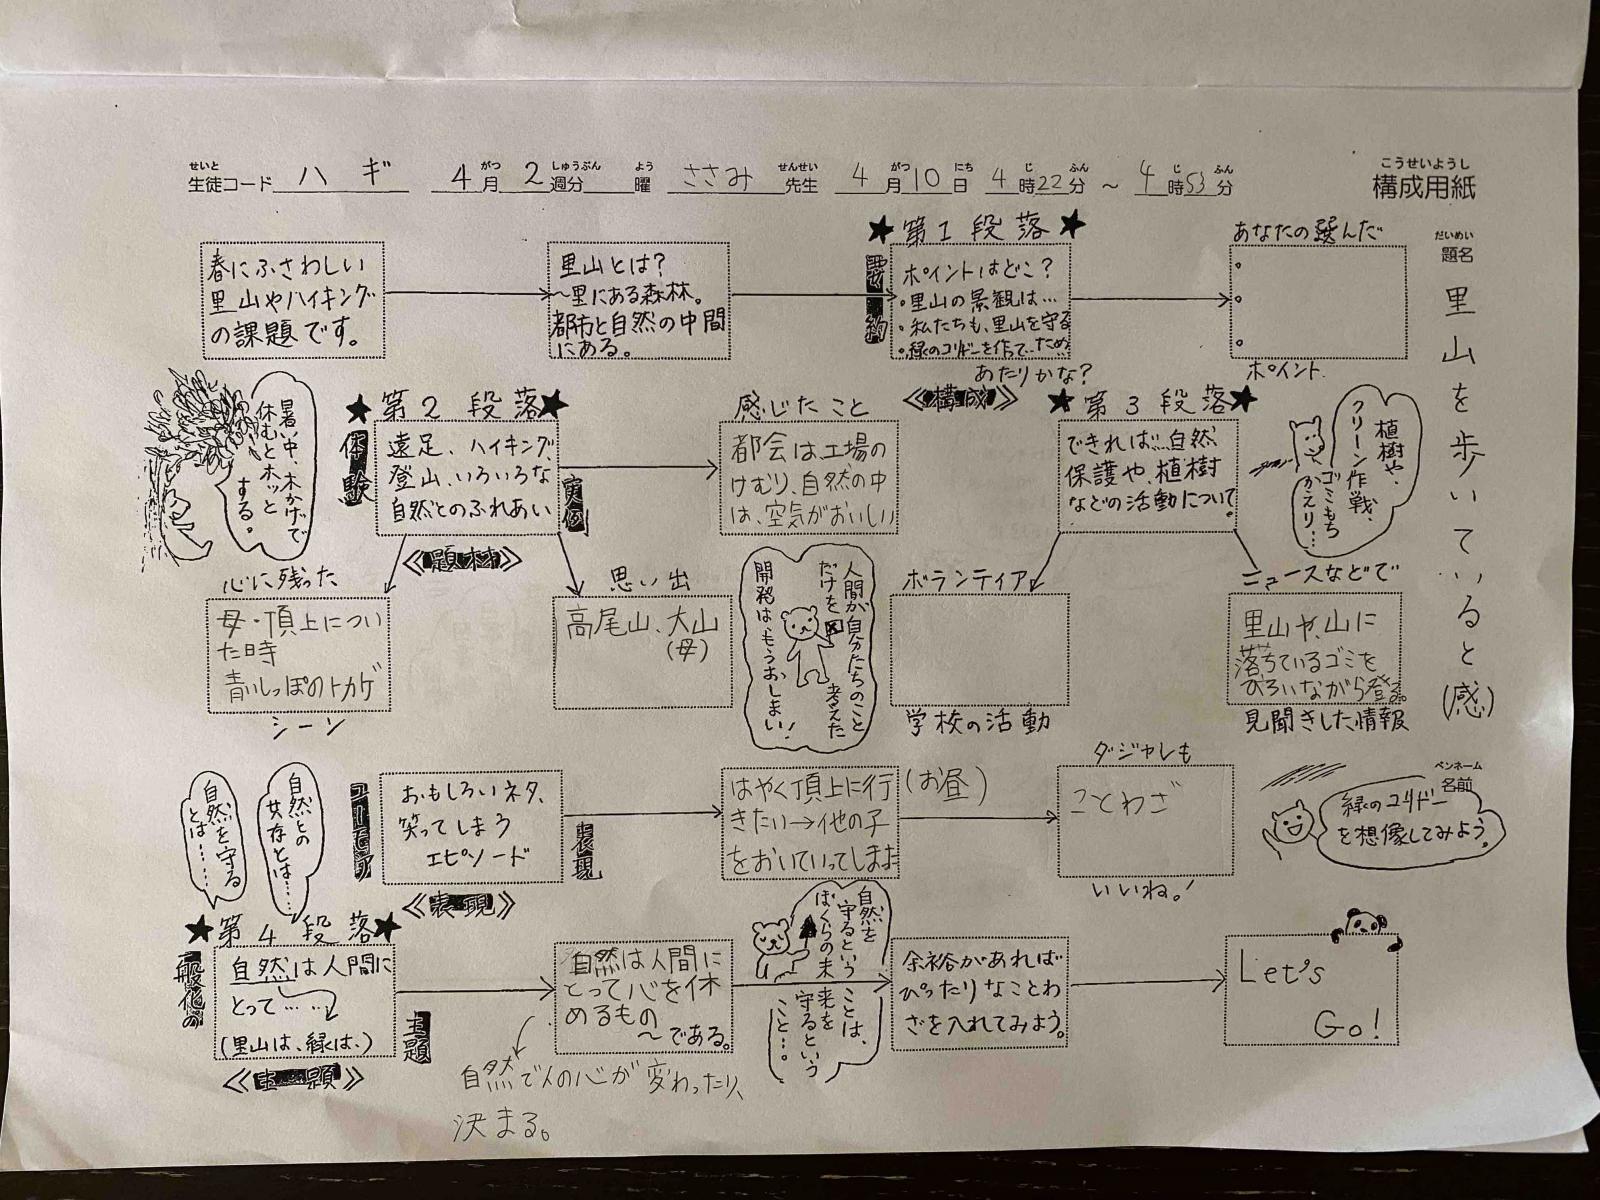 せいと がつ しゅうぶん よう せんせい がつ にち じ ふん じ ふん
生徒コード ハギ 4月 2週分 曜 ささみ 先生 4月10日 4時22分 ～ 4時53分
こうせいようし
構成用紙
だいめい
題名
里山を歩いていると(感)
ペンネーム
名前
春にふさわしい
里山やハイキング
の課題です。
里山とは？
～里にある森林。
都市と自然の中間
にある。
★第1段落★
要約
ポイントはどこ？
・里山の景観は…
・私たちも、里山を守る
・緑のコリドーを作って…ため
あたりかな？
《構成》
あなたの選んだ
ポイント
暑い中、木かげで
休むとホッと
する。
★第2段落★
体験
遠足、ハイキング、
登山、いろいろな
自然とのふれあい
実例
《題材》
感じたこと
都会は工場の
けむり、自然の中
は、空気がおいしい
★第3段落★
できれば…自然
保護や、植樹
などの活動について。
植樹や、
クリーン作戦、
ゴミもち
かえり…
心に残った
母・頂上につい
た時
青いしっぽのトカゲ
シーン
思い出
高尾山、大山
(母)
人間が自分たちのこと
だけを考えた
開発は、もうおしまい！
ボランティア
学校の活動
ニュースなどで
里山や、山に
落ちているゴミを
ひろいながら登る。
見聞きした情報
自然を守る
とは……
自然との
共存とは……
ユーモア
おもしろいネタ、
笑ってしまう
エピソード
表現
《表現》
はやく頂上に行(お昼)
きたい→他の子
をおいていってします
ダジャレも
ことわざ
いいね。！
緑のコリドー
を想像してみよう。
★第4段落★
一般化の
自然は人間に
とって……
(里山は、緑は、)
主題
《主題》
自然は人間に
とって心を休
めるもの
～である。
自然で人の心が変わったり、
決まる。
自然を
守るという
ことは、
ぼくらの未
来を
守るという
こと…。
余裕があれば
ぴったりなことわ
ざを入れてみよう。
Let's
Go!